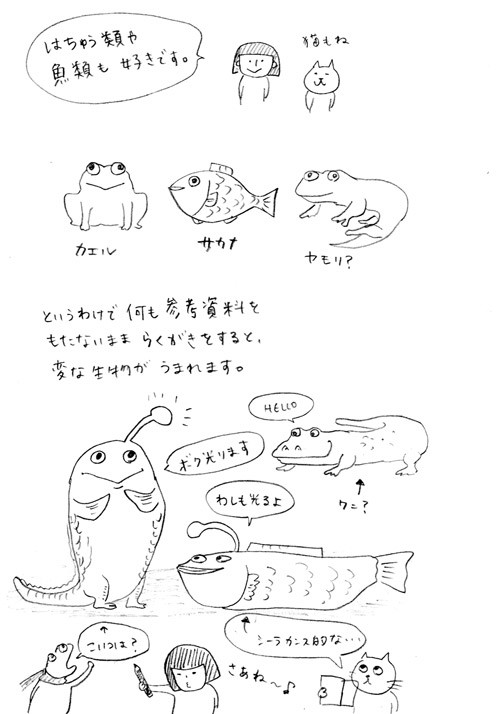 はちゅう類や
魚類も 好きです。
猫もね
カエル
サカナ
ヤモリ?
というわけで 何も 参考資料を
もたないまま らくがきをすると、
変な生物が うまれます。
HELLO
ボク光ります
ワニ?
わしも光るよ
シーラカンス的な...
こいつは?
さあね〜♪